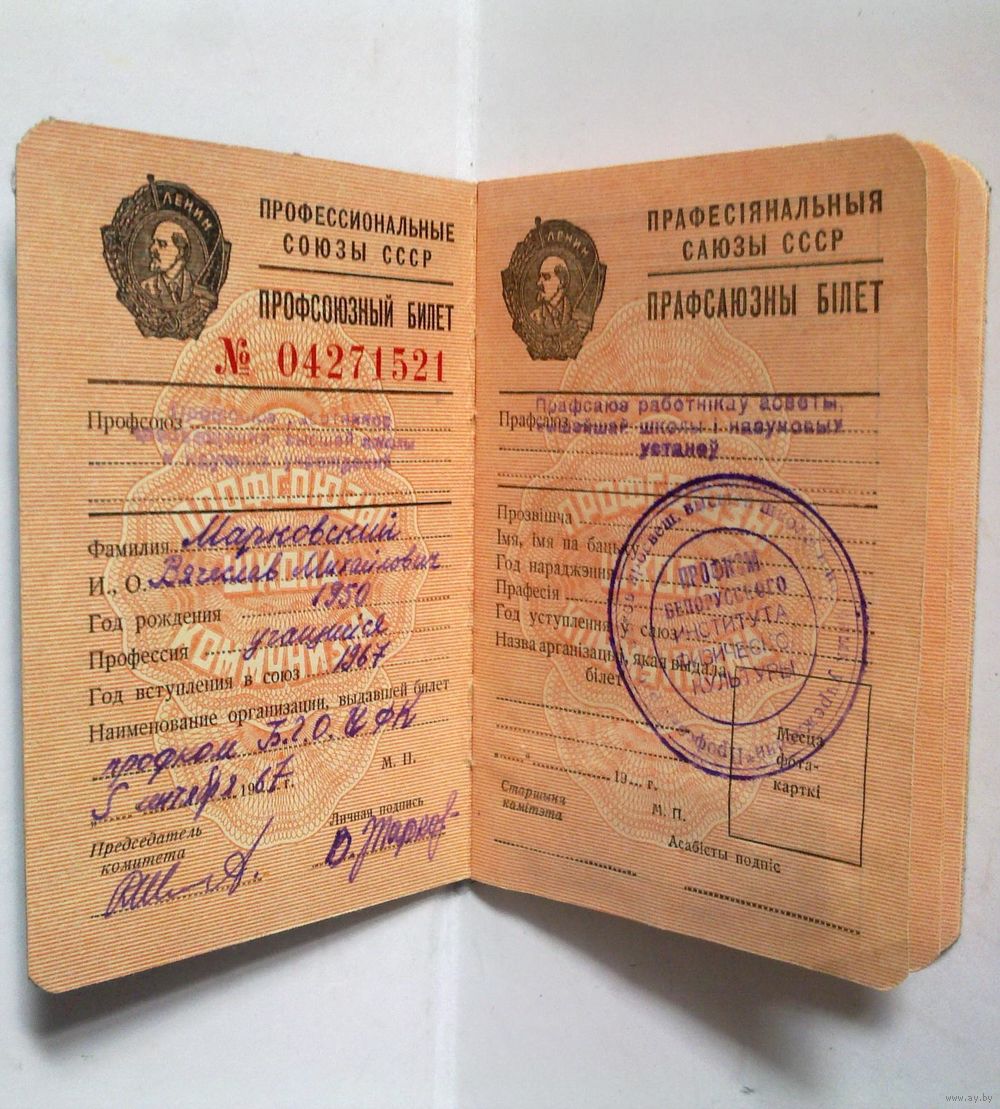 ЛЕНИН
ПРОФЕССИОНАЛЬНЫЕ
СОЮЗЫ СССР
ПРОФСОЮЗНЫЙ БИЛЕТ
№ 04271521
Профсоюз
высшей школы
и научных учреждений
ПРОФСОЮЗЫ
ШКОЛА
КОММУНИЗМА
Фамилия Марковский
И., О. Вячеслав Михайлович
Год рождения 1950
Профессия учащийся
Год вступления в союз 1967
Наименование организации, выдавшей билет
профком Б.Г.О.И.Ф.К
"5" сентября 1967 г.
М. П.
Председатель
комитета
Личная подпись
В. Марков
ЛЕНИН
ПРАФЕСІЯНАЛЬНЫЯ
САЮЗЫ СССР
ПРАФСАЮЗНЫ БІЛЕТ
Прафсаюз
Прафсаюз работнікаў асветы,
вышэйшай школы і навуковых
устаноў
Прозвішча
Імя, імя па бацьку
Год нараджэння
Прафесія
Год уступлення ў саюз
Назва арганізацыі, якая выдала
білет
" " 19 г.
Старшыня
камітэта
М. П.
Асабісты подпіс
Месца
фота-
карткі
ПРОФКОМ
БЕЛОРУССКОГО
ИНСТИТУТА
ФИЗИЧЕСКОЙ
КУЛЬТУРЫ
www.ay.by